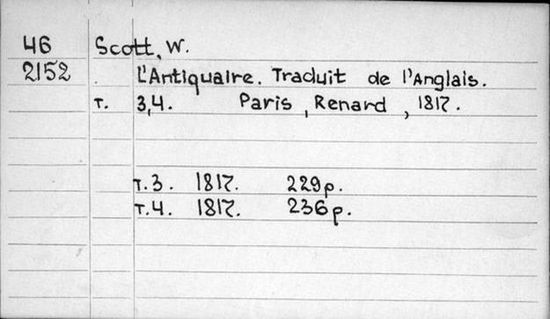 46 Scott, W.
2152 L'Antiquaire. Traduit de l'Anglais.
т. 3,4. Paris, Renard, 1817.
т.3. 1817. 229p.
т.4. 1817. 236p.